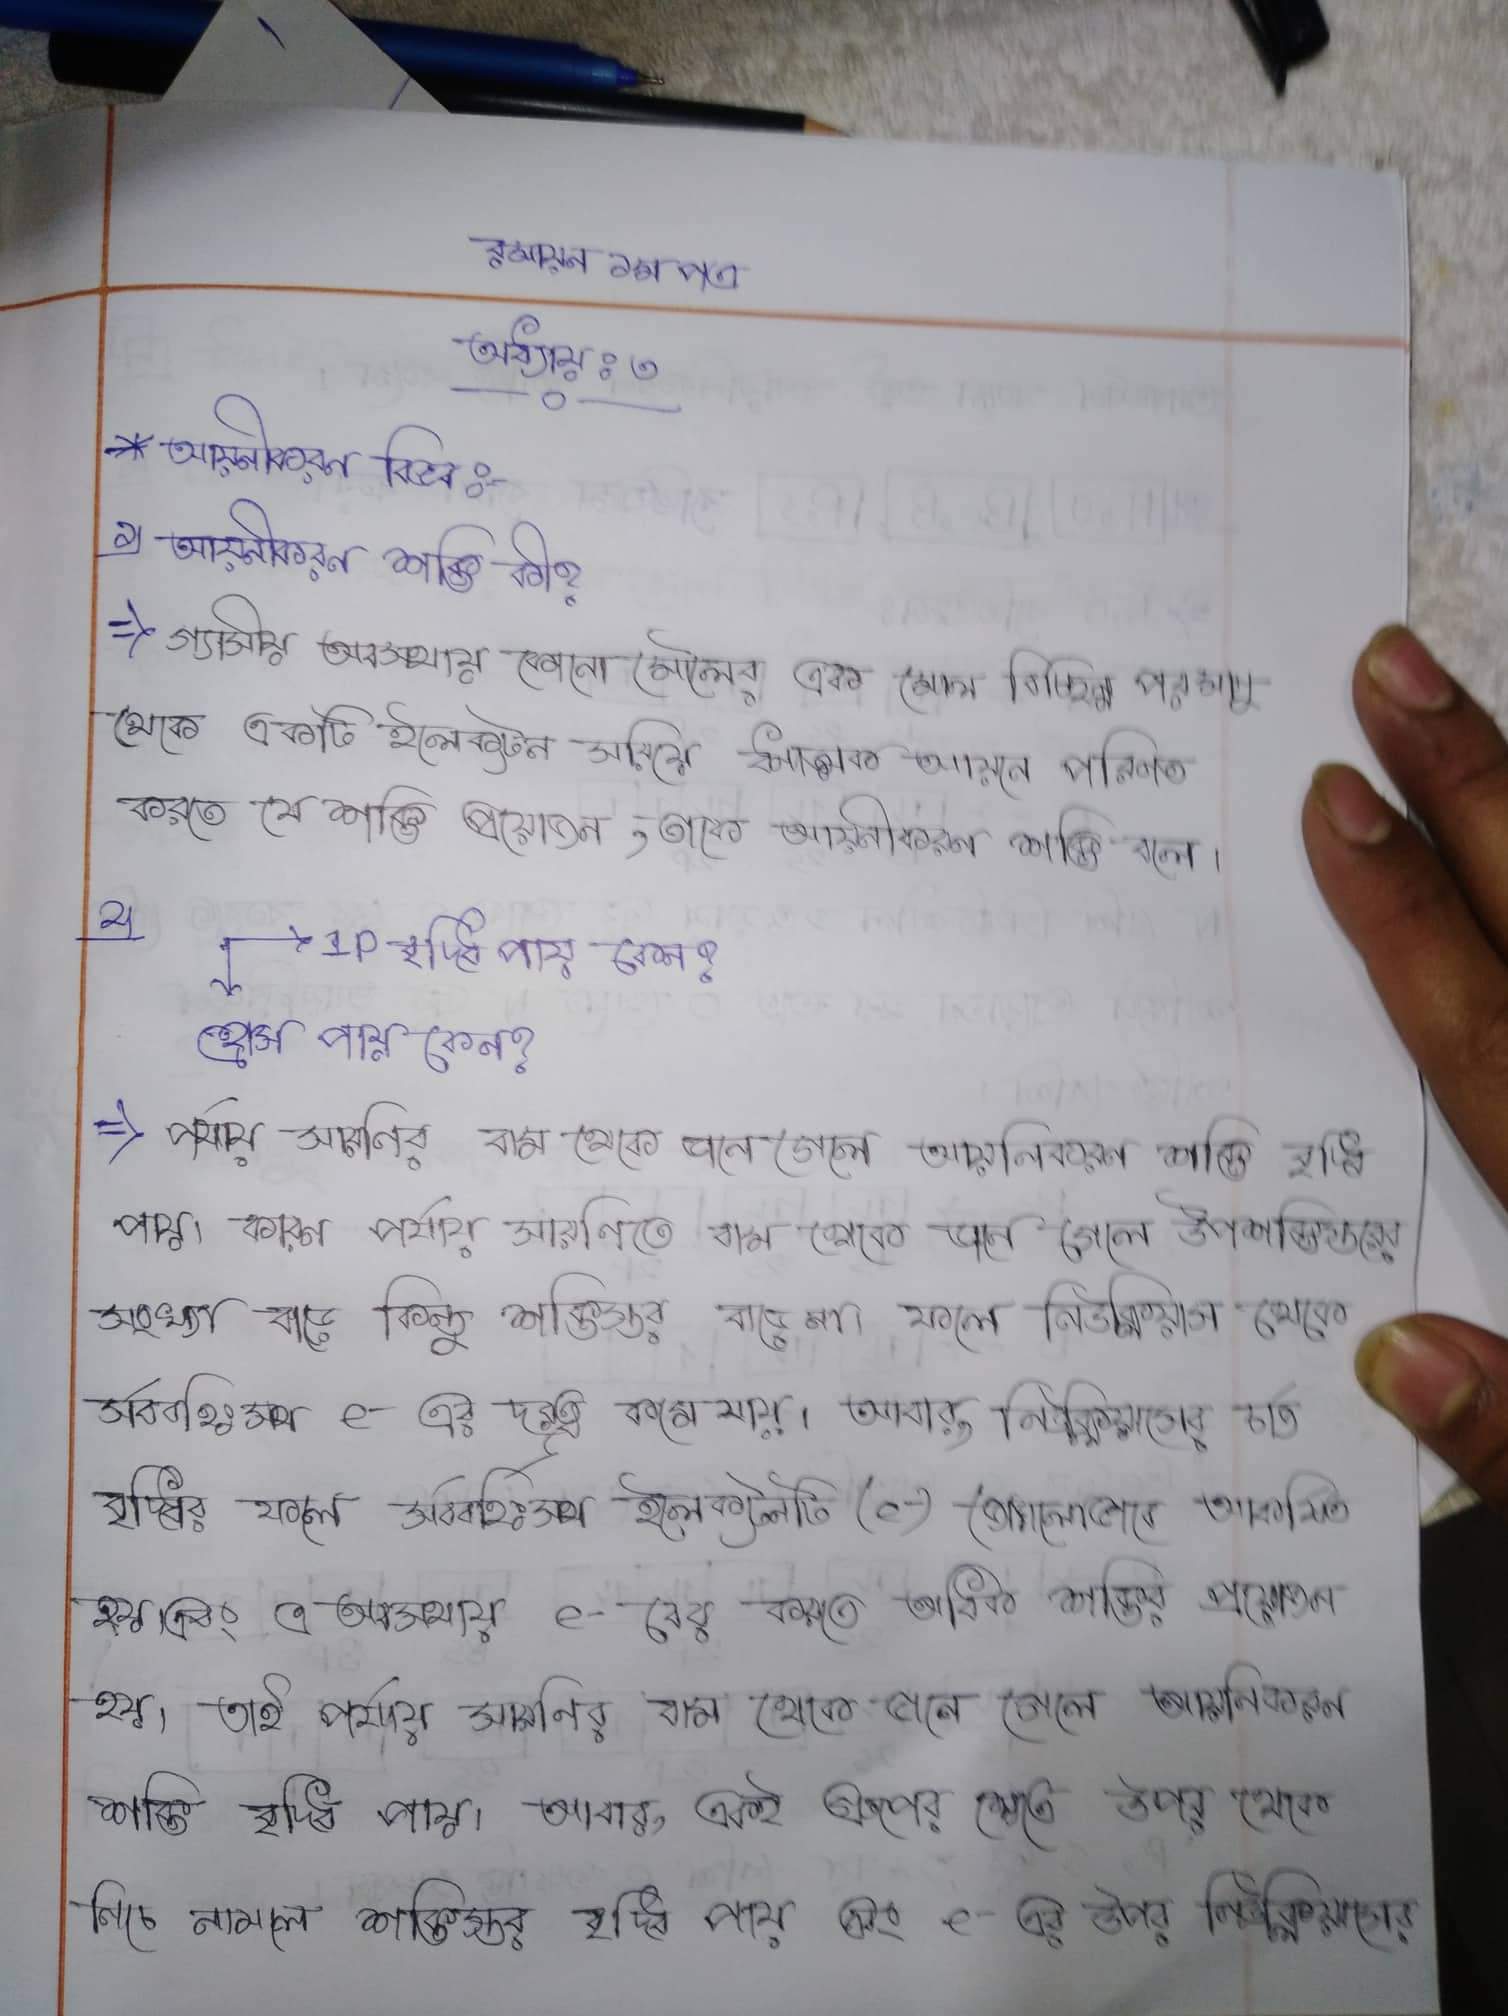 রসায়ন ১ম পত্র
অধ্যায়ঃ ৩
* আয়নীকরন বিভব ঃ-
১ আয়নীকরন শক্তি কী?
⇒ গ্যাসীয় অবস্থায় কোনো মৌলের এক মোল বিচ্ছিন্ন পরমাণু
থেকে একটি ইলেকট্রন সরিয়ে ধনাত্মক আয়নে পরিণত
করতে যে শক্তি প্রয়োজন, তাকে আয়নীকরন শক্তি বলে।
২ → IP বৃদ্ধি পায় কেন?
হ্রাস পায় কেন?
⇒ পর্যায় সারনির বাম থেকে ডানে গেলে আয়নিকরন শক্তি বৃদ্ধি
পায়। কারন পর্যায় সারনিতে বাম থেকে ডানে গেলে উপশক্তিস্তরের
সংখ্যা বাড়ে কিন্তু শক্তিস্তর বাড়ে না। ফলে নিউক্লিয়াস থেকে
সর্ববহিঃস্থ e- এর দূরত্ব কমে যায়। আবার, নিউক্লিয়াসের চার্জ
বৃদ্ধির ফলে সর্ববহিঃস্থ ইলেকট্রনটি (e-) জোরালোভাবে আকর্ষিত
হয় এবং এ অবস্থায় e- বের করতে অধিক শক্তির প্রয়োজন
হয়। তাই পর্যায় সারনির বাম থেকে ডানে গেলে আয়নিকরন
শক্তি বৃদ্ধি পায়। আবার, একই গ্রুপের ক্ষেত্রে উপর থেকে
নিচে নামলে শক্তিস্তর বৃদ্ধি পায় এবং e- এর উপর নিউক্লিয়াসের